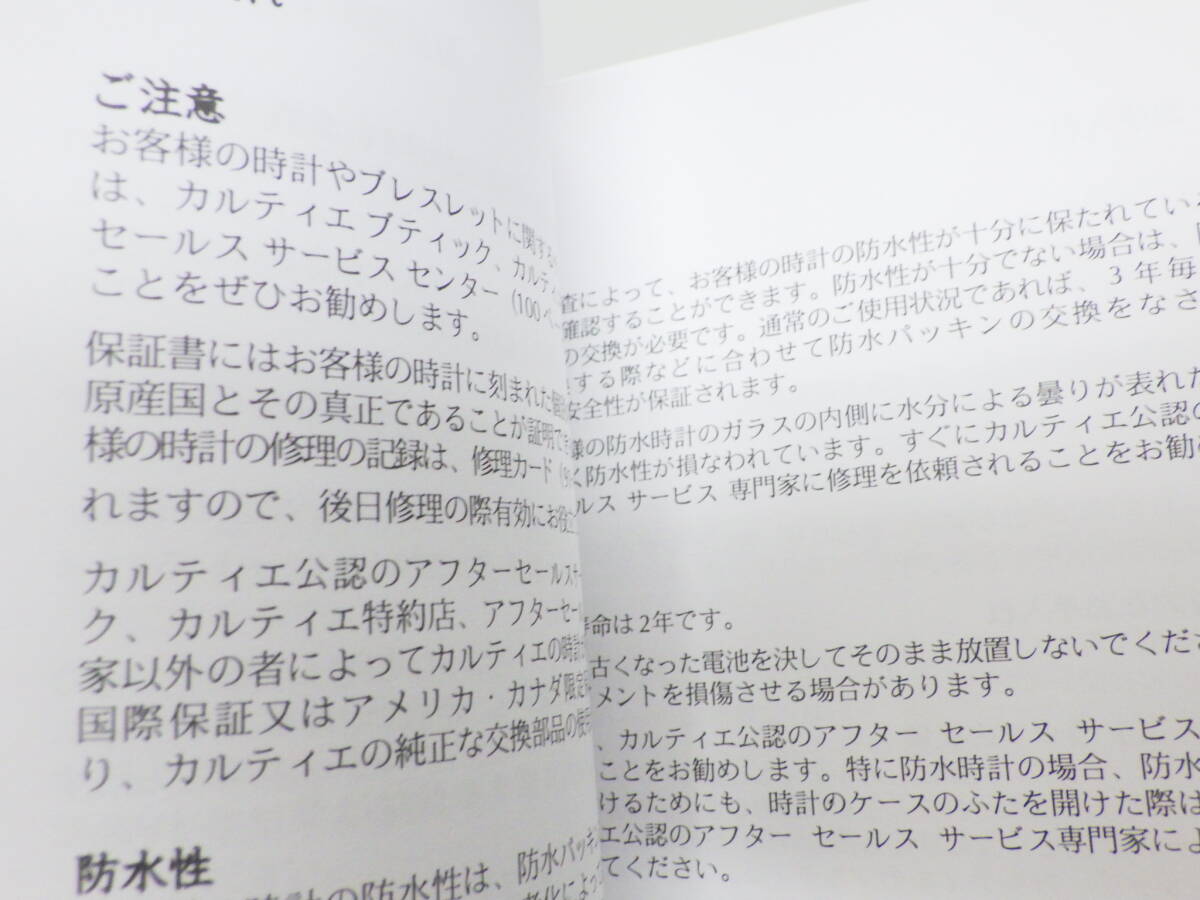 ご注意
お客様の時計やブレスレットに関する
は、カルティエ ブティック、カルティ
セールス サービス センター (100 ペ
ことをぜひお勧めします。
保証書にはお客様の時計に刻まれた個
原産国とその真正であることが証明
様の時計の修理の記録は、修理カード
れますので、後日修理の際有効にお役立
カルティエ公認のアフターセールスサ
ク、カルティエ特約店、アフターセー
家以外の者によってカルティエの時計
国際保証又はアメリカ・カナダ限定
り、カルティエの純正な交換部品の使
防水性
時計の防水性は、防水パッキ
老化によっ
査によって、お客様の時計の防水性が十分に保たれてい
確認することができます。防水性が十分でない場合は、
の交換が必要です。通常のご使用状況であれば、3 年毎
する際などに合わせて防水パッキンの交換をなさ
安全性が保証されます。
様の防水時計のガラスの内側に水分による曇りが表れた
く防水性が損なわれています。すぐにカルティエ公認の
ルス サービス 専門家に修理を依頼されることをお勧め
命は 2年です。
古くなった電池を決してそのまま放置しないでくださ
メントを損傷させる場合があります。
、カルティエ公認のアフター セールス サービス
ことをお勧めします。特に防水時計の場合、防水
けるためにも、時計のケースのふたを開けた際は
エ公認のアフター セールス サービス専門家によ
てください。